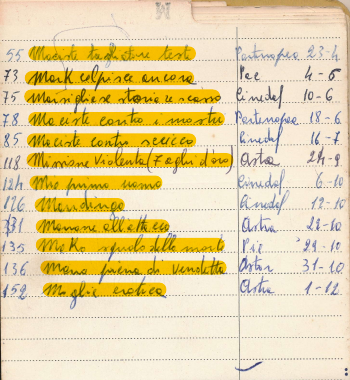 M
55 Maciste tagliatore teste Partenopeo 23-4
73 Mark colpisce ancora Pac 4-5
75 Marsigliese storia e scasso Cinedaf 10-6
78 Maciste contro i mostri Partenopeo 18-6
85 Maciste contro sceicco Cinedaf 16-7
118 Missione Violenta (7 aghi d'oro) Astra 24-9
124 Mio primo uomo Cinedaf 6-10
126 Mandingo Cinedaf 12-10
131 Manone all'attacco Astra 22-10
135 Mako squalo della morte Pic 29-10
136 Mano piena di vendetta Astor 31-10
152 Moglie erotica Astra 1-12